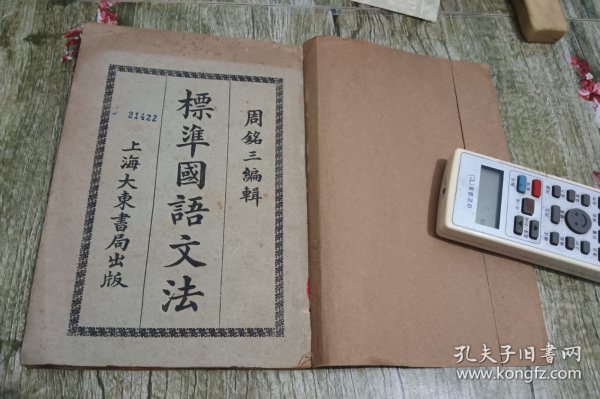 周銘三編輯
標準國語文法
21422
上海大東書局出版
孔夫子旧書网
www.kongfz.com